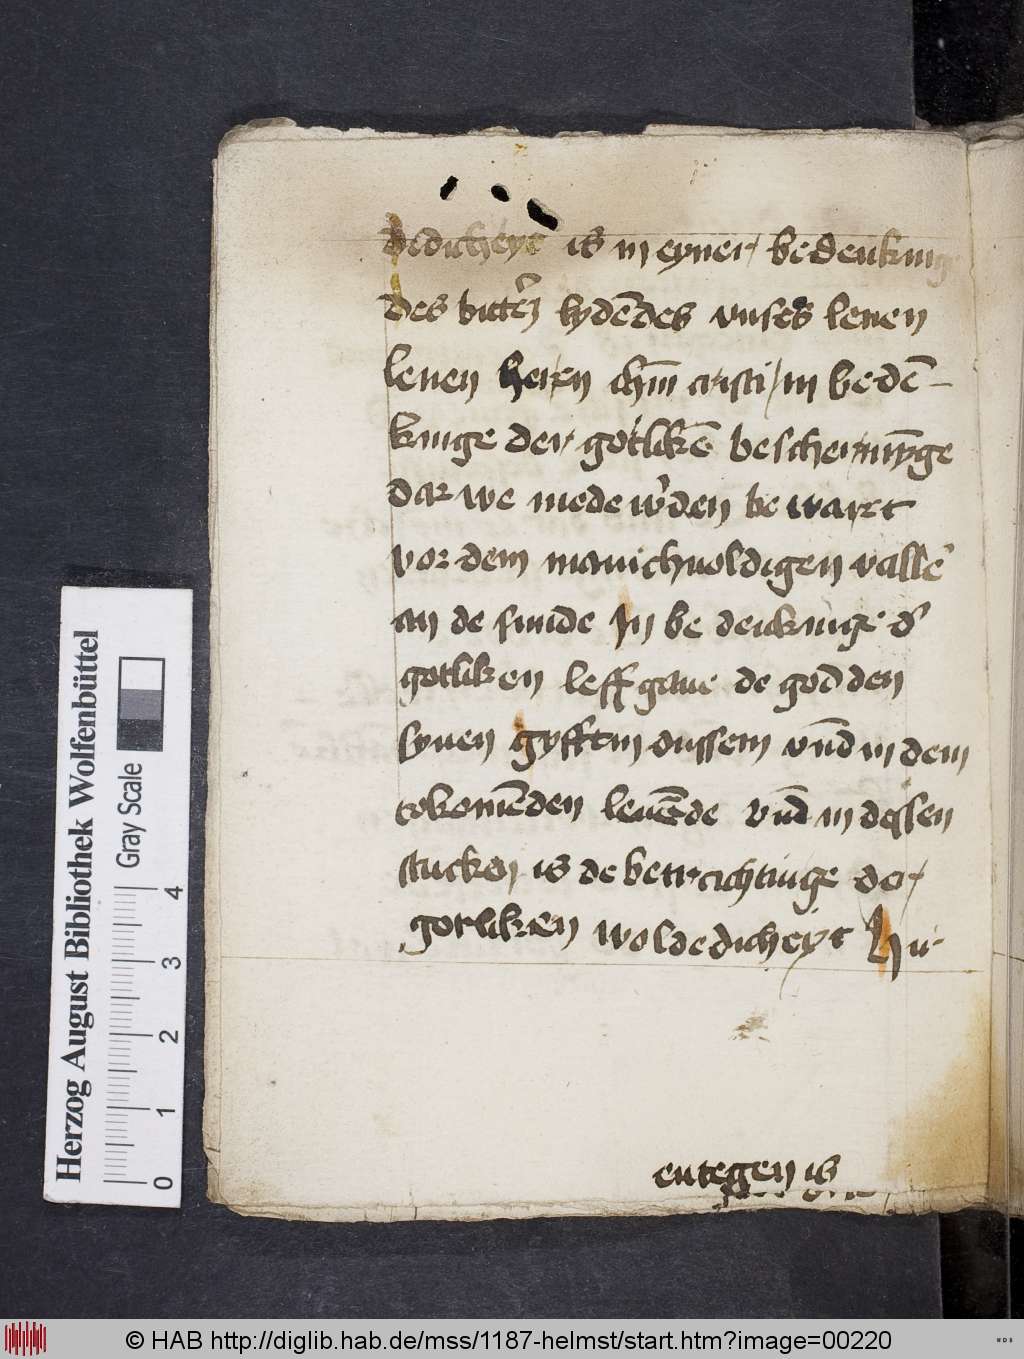 dedicheyt is in eyner bedenkinge
des bittern lydēdes vnses leuen
leuen heren ihū cristi / in bedē-
kinge der gotlikē beschermȳge
dar we mede w'den be wart
vor dem manichuoldigen valle
an de sunde In be denkinge d'
gotliken leffgaue de god den
synen gyfft in dussem vn̄d in dem
tokomēden leuēde vn̄d in dessen
stucken is de betrachtinge der
gotliken woldedicheyt Hir
entegen is
Herzog August Bibliothek Wolfenbüttel
Gray Scale
0 1 2 3 4
© HAB http://diglib.hab.de/mss/1187-helmst/start.htm?image=00220